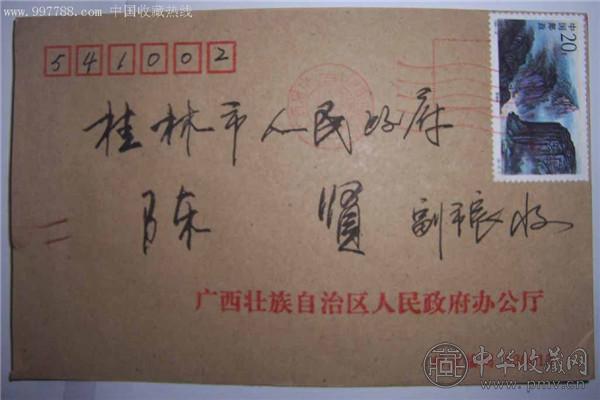 www.997788.com-中国收藏热线
541002
20分
中国邮政
桂林市人民政府
陈 贤 副市长收
广西壮族自治区人民政府办公厅
中华收藏网
www.pmv.cn